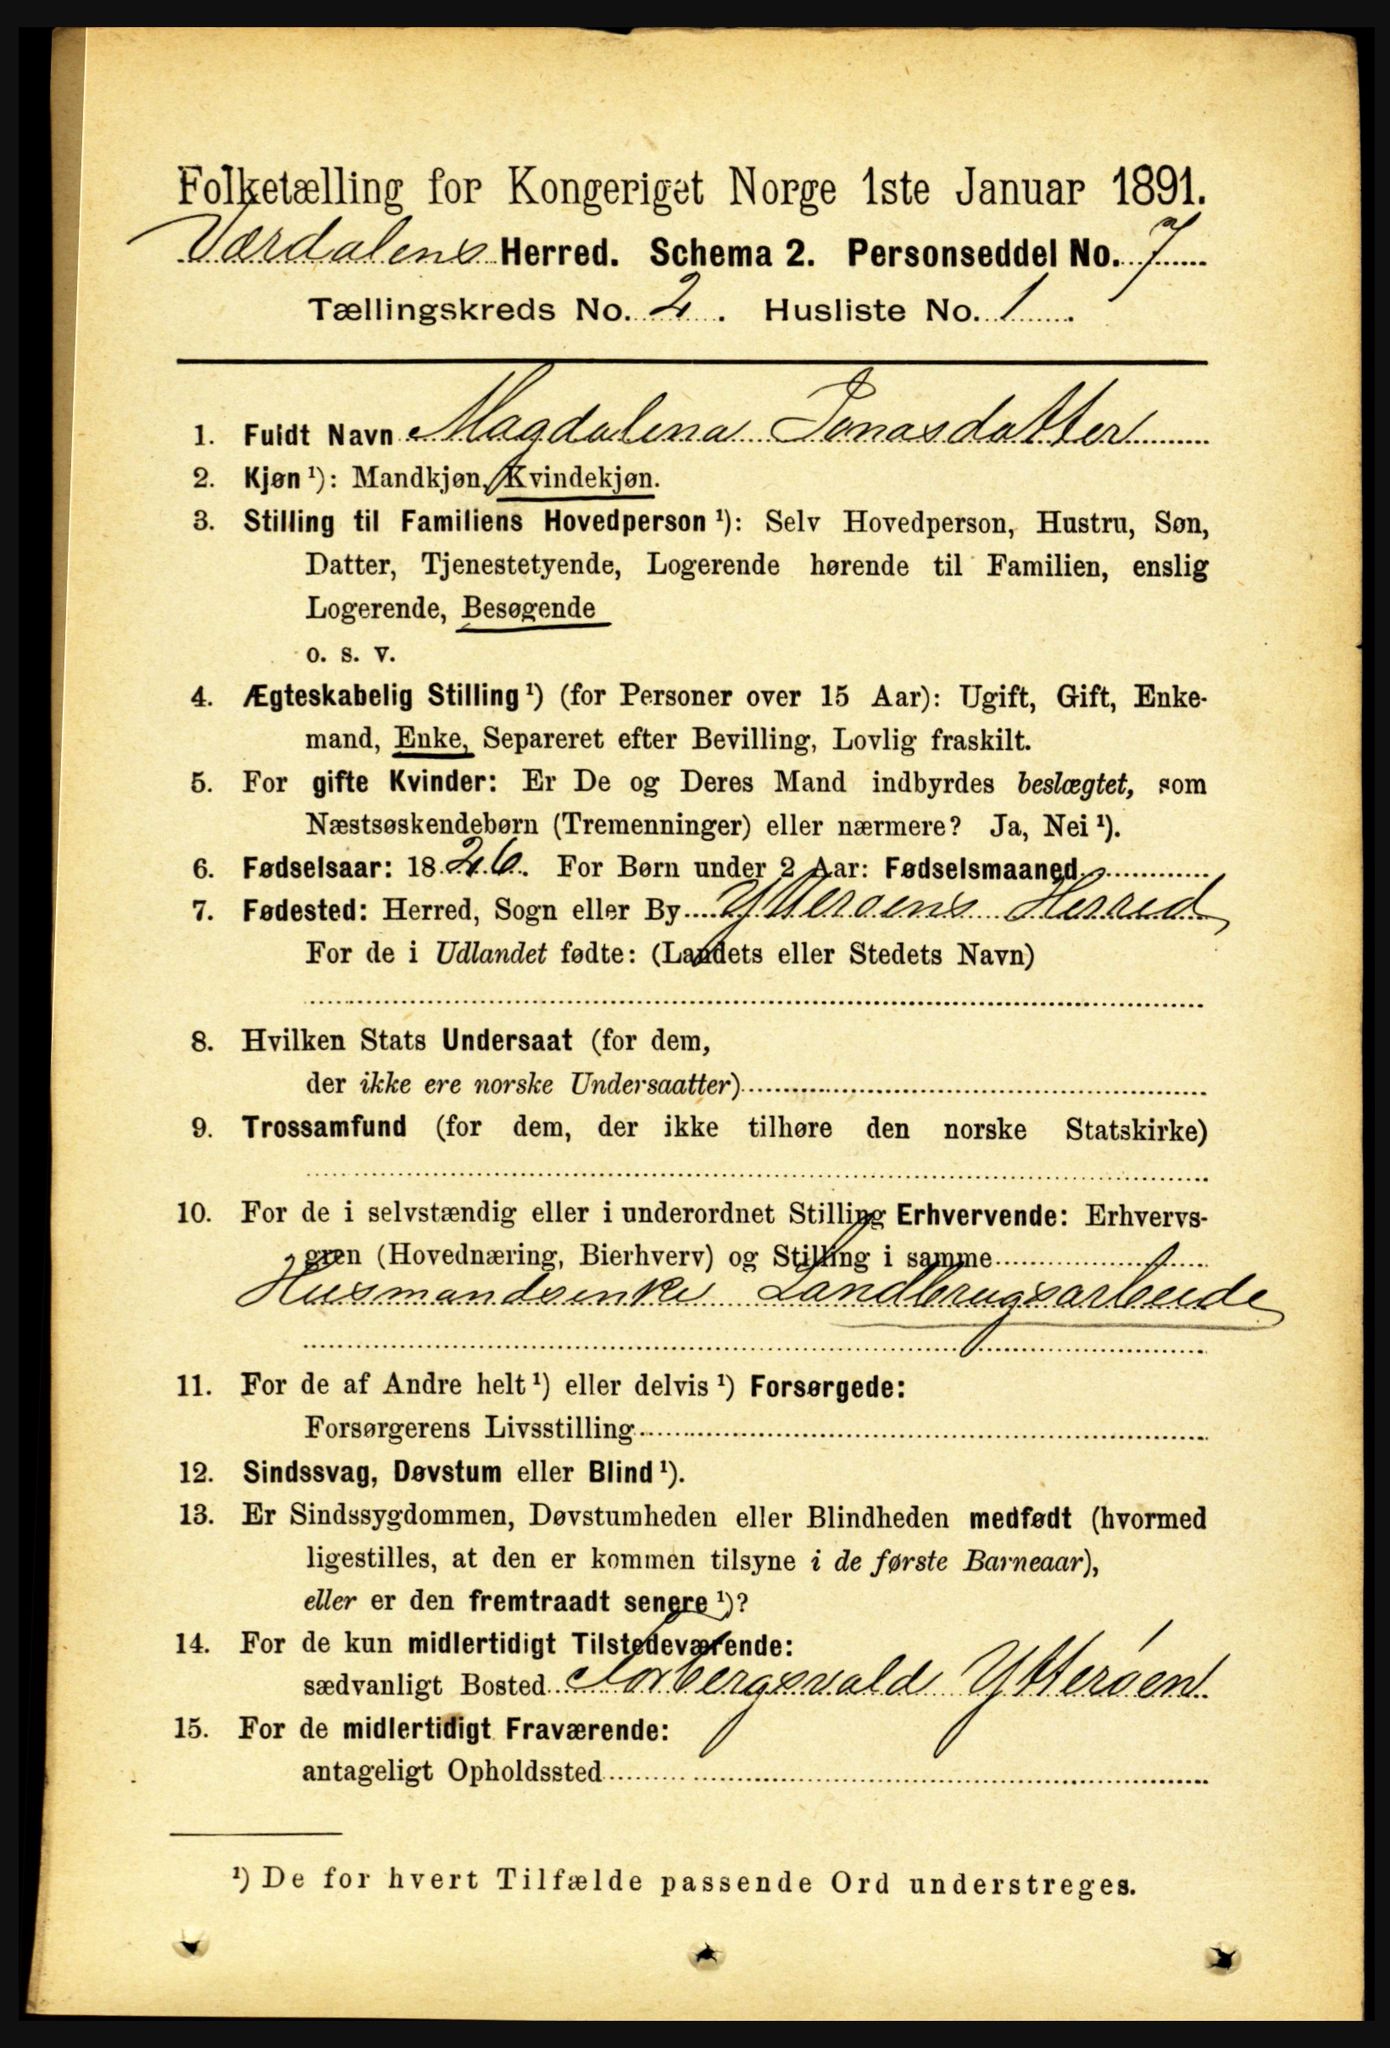 Folketælling for Kongeriget Norge 1ste Januar 1891.
Værdalens Herred. Schema 2. Personseddel No. 7
Tællingskreds No. 2. Husliste No. 1.
1. Fuldt Navn Magdalena Jonasdatter
2. Kjøn ¹): Mandkjøn, Kvindekjøn.
3. Stilling til Familiens Hovedperson ¹): Selv Hovedperson, Hustru, Søn,
Datter, Tjenestetyende, Logerende hørende til Familien, enslig
Logerende, Besøgende
o. s. v.
4. Ægteskabelig Stilling ¹) (for Personer over 15 Aar): Ugift, Gift, Enke-
mand, Enke, Separeret efter Bevilling, Lovlig fraskilt.
5. For gifte Kvinder: Er De og Deres Mand indbyrdes beslægtet, som
Næstsøskendebørn (Tremenninger) eller nærmere? Ja, Nei ¹).
6. Fødselsaar: 1826. For Børn under 2 Aar: Fødselsmaaned
7. Fødested: Herred, Sogn eller By Ytterøens Herred
For de i Udlandet fødte: (Landets eller Stedets Navn)
8. Hvilken Stats Undersaat (for dem,
der ikke ere norske Undersaatter)
9. Trossamfund (for dem, der ikke tilhøre den norske Statskirke)
10. For de i selvstændig eller i underordnet Stilling Erhvervende: Erhvervs-
gren (Hovednæring, Bierhverv) og Stilling i samme
Husmandsenke Landbrugsarbeide
11. For de af Andre helt ¹) eller delvis ¹) Forsørgede:
Forsørgerens Livsstilling
12. Sindssvag, Døvstum eller Blind ¹).
13. Er Sindssygdommen, Døvstumheden eller Blindheden medfødt (hvormed
ligestilles, at den er kommen tilsyne i de første Barneaar),
eller er den fremtraadt senere ¹)?
14. For de kun midlertidigt Tilstedeværende:
sædvanligt Bosted Torbergsvald Ytterøen
15. For de midlertidigt Fraværende:
antageligt Opholdssted
¹) De for hvert Tilfælde passende Ord understreges.